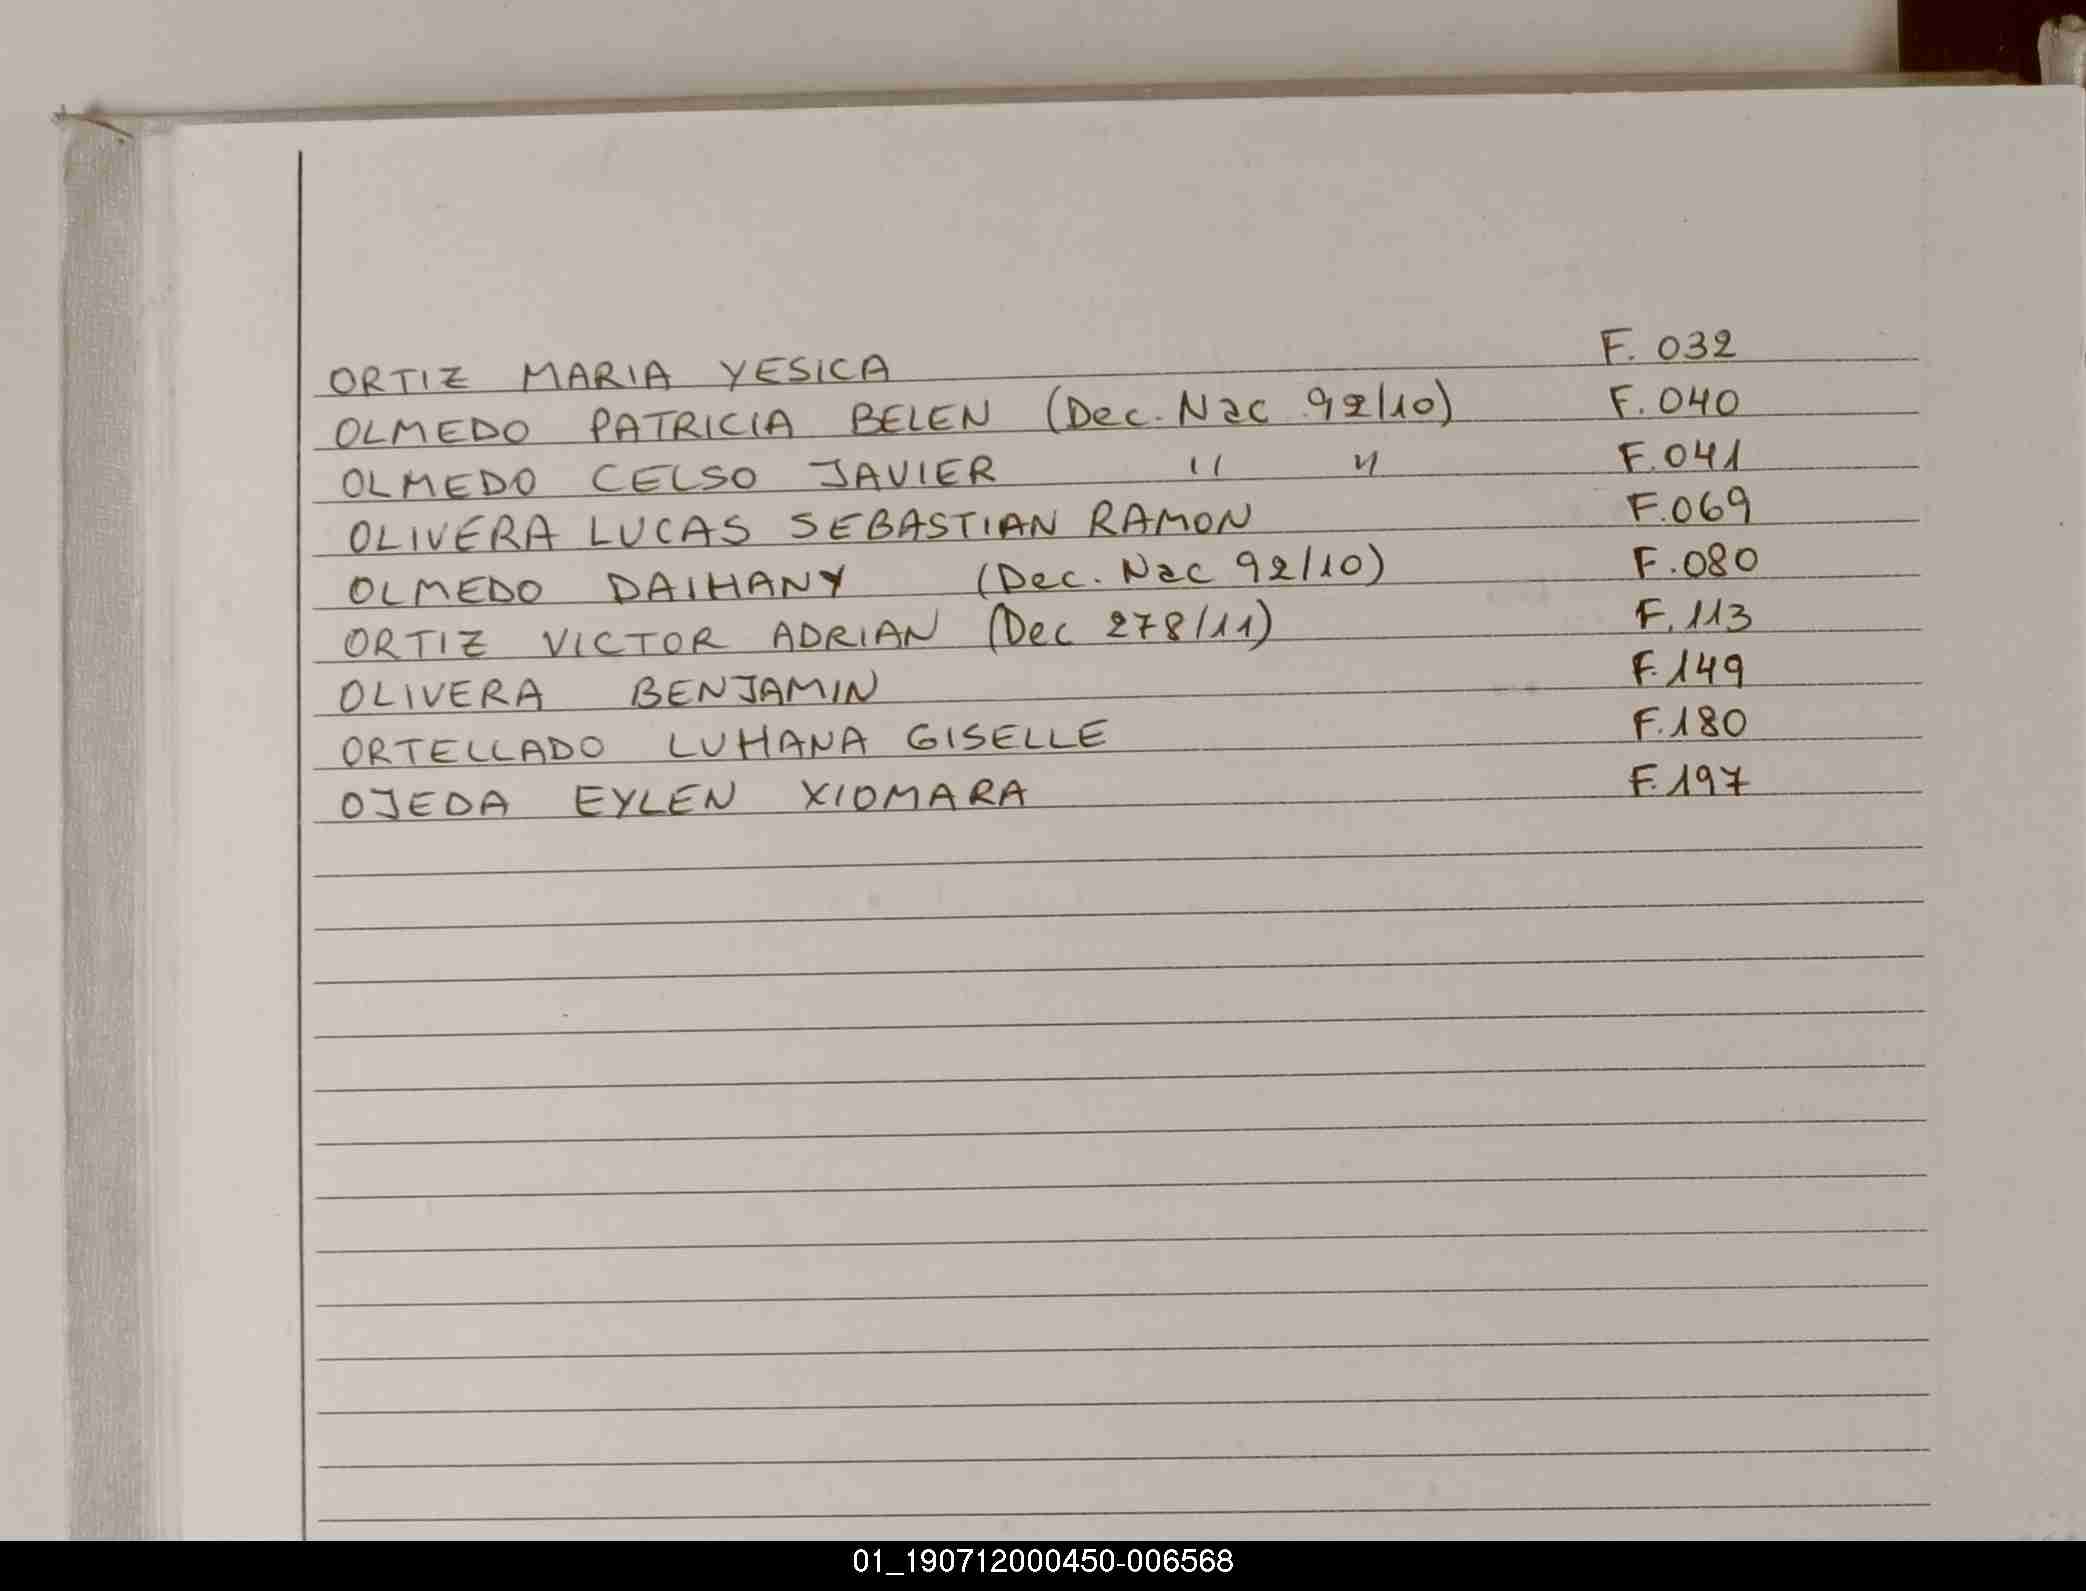 ORTIZ MARIA YESICA F. 032
OLMEDO PATRICIA BELEN (Dec. Nac 92/10) F. 040
OLMEDO CELSO JAVIER " " F. 041
OLIVERA LUCAS SEBASTIAN RAMON F. 069
OLMEDO DAIHANY (Dec. Nac 92/10) F. 080
ORTIZ VICTOR ADRIAN (Dec 278/11) F. 113
OLIVERA BENJAMIN F. 149
ORTELLADO LUHANA GISELLE F. 180
OJEDA EYLEN XIOMARA F. 197
01_190712000450-006568